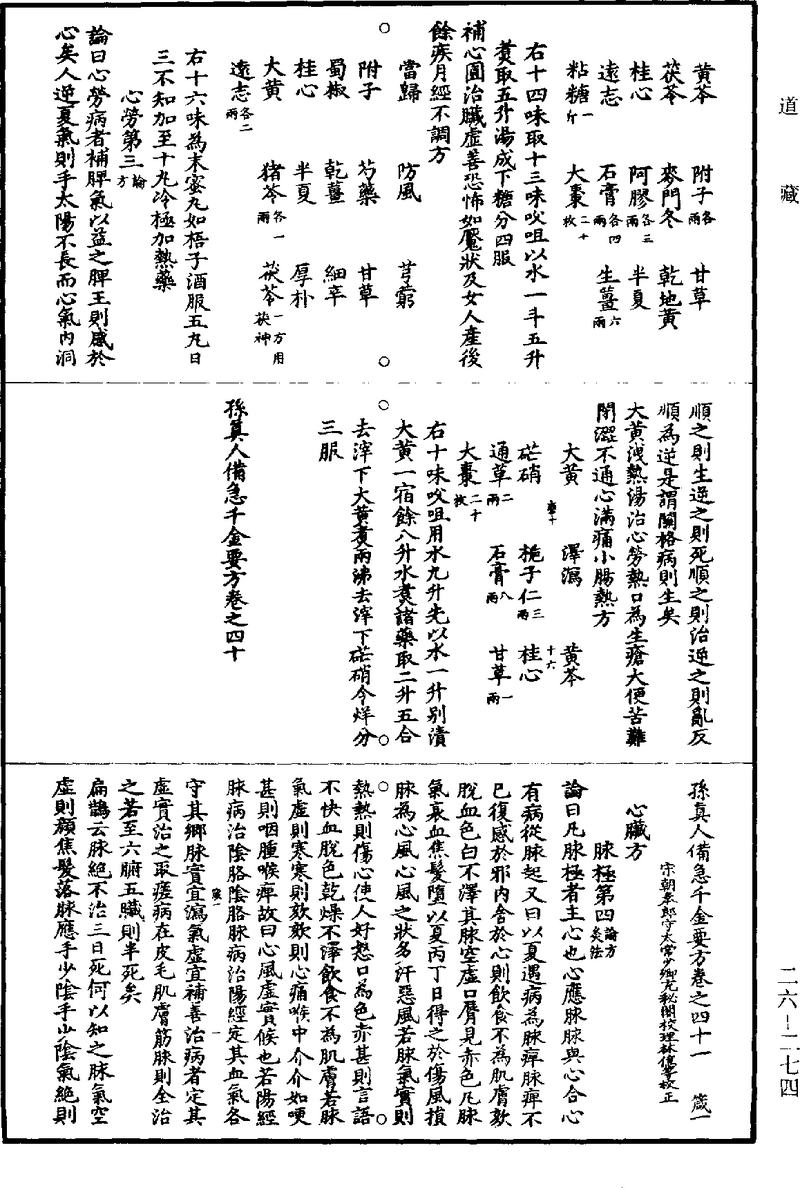 道藏
黃芩 附子各一兩 甘草
茯苓 麥門冬 乾地黃
桂心 阿膠各三兩 半夏
遠志 石膏各四兩 生薑六兩
粘糖一斤 大棗二十枚
右十四味取十三味㕮咀以水一斗五升
煮取五升湯成下糖分四服
補心圓治臟虛善恐怖如魘狀及女人產後
餘疾月經不調方
當歸 防風 芎藭
附子 芍藥 甘草
蜀椒 乾薑 細辛
桂心 半夏 厚朴
大黃 猪苓各一兩 茯苓一方用茯神
遠志各二兩
右十六味為末蜜丸如梧子酒服五丸日
三不知加至十丸冷極加熱藥
心勞第三論方
論曰心勞病者補脾氣以益之脾王則感於
心矣人逆夏氣則手太陽不長而心氣內洞
順之則生逆之則死順之則治逆之則亂反
順為逆是謂關格病則生矣
大黃洩熱湯治心勞熱口為生瘡大便苦難
閉澀不通心滿痛小腸熱方
大黃 澤瀉 黃芩
芒硝 梔子仁三兩 桂心
通草二兩 石膏八兩 甘草一兩
大棗二十枚
右十味㕮咀用水九升先以水一升別漬
大黃一宿餘八升水煮諸藥取二升五合
去滓下大黃煮兩沸去滓下芒硝令烊分
三服
孫真人備急千金要方卷之四十
孫真人備急千金要方卷之四十一 箴一
宋朝奉郎守太常少卿充秘閣校理林億等校正
心臟方
脈極第四論方灸法
論曰凡脈極者主心也心應脈脈與心合心
有病從脈起又曰以夏遇病為脈痺脈痺不
已復感於邪內舍於心則飲食不為肌膚欬
脫血色白不澤其脈空虛口脣見赤色凡脈
氣衰血焦髮墮以夏丙丁日得之於傷風損
脈為心風心風之狀多汗惡風若脈氣實則
熱熱則傷心使人好怒口為色赤甚則言語
不快血脫色乾燥不澤飲食不為肌膚若脈
氣虛則寒寒則欬欬則心痛喉中介介如哽
甚則咽腫喉痺故曰心風虛實候也若陽經
脈病治陰胳陰胳脈病治陽經定其血氣各
守其鄉脈實宜瀉氣虛宜補善治病者定其
虛實治之取瘥病在皮毛肌膚筋脈則全治
之若至六腑五臟則半死矣
扁鵲云脈絕不治三日死何以知之脈氣空
虛則顏焦髮落脈應手少陰手少陰氣絕則
二六-二七四